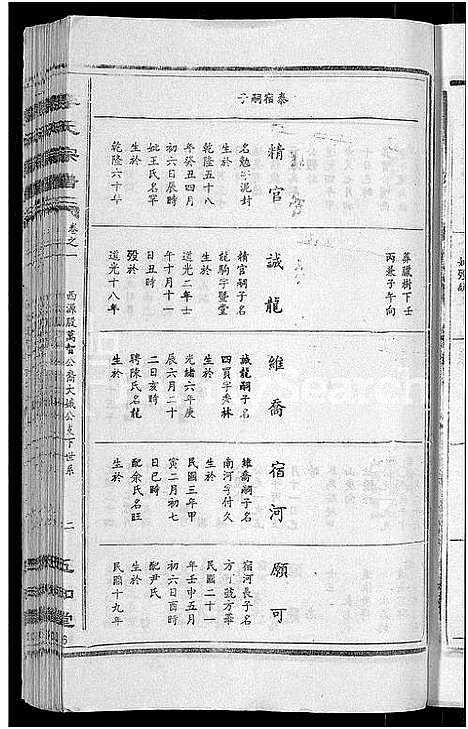 泰宿嗣子
精官
名勉
泥封
生於
乾隆五十八
年癸丑四月
初六日辰時
妣王氏名罕
生於
乾隆六十年
葬臘樹下壬
丙兼子午向
誠龍
精官嗣子名
龍駒字暨堂
生於
道光二年壬
午十月十一
日丑時
歿於
道光十八年
維喬
誠龍嗣子名
四買字秀林
生於
光緒六年庚
辰六月二十
二日亥時
聘陳氏名龍
生於
宿河
維喬嗣子名
南河字付久
生於
民國三年甲
寅二月初七
日巳時
配余氏名旺
生於
願可
宿河長子名
方可號方華
民國二十一
年壬申五月
初六日酉時
配尹氏
生於
民國十九年
氏宗譜
卷之一
西源殷萬吉公裔大城公支下世系
二
五和堂